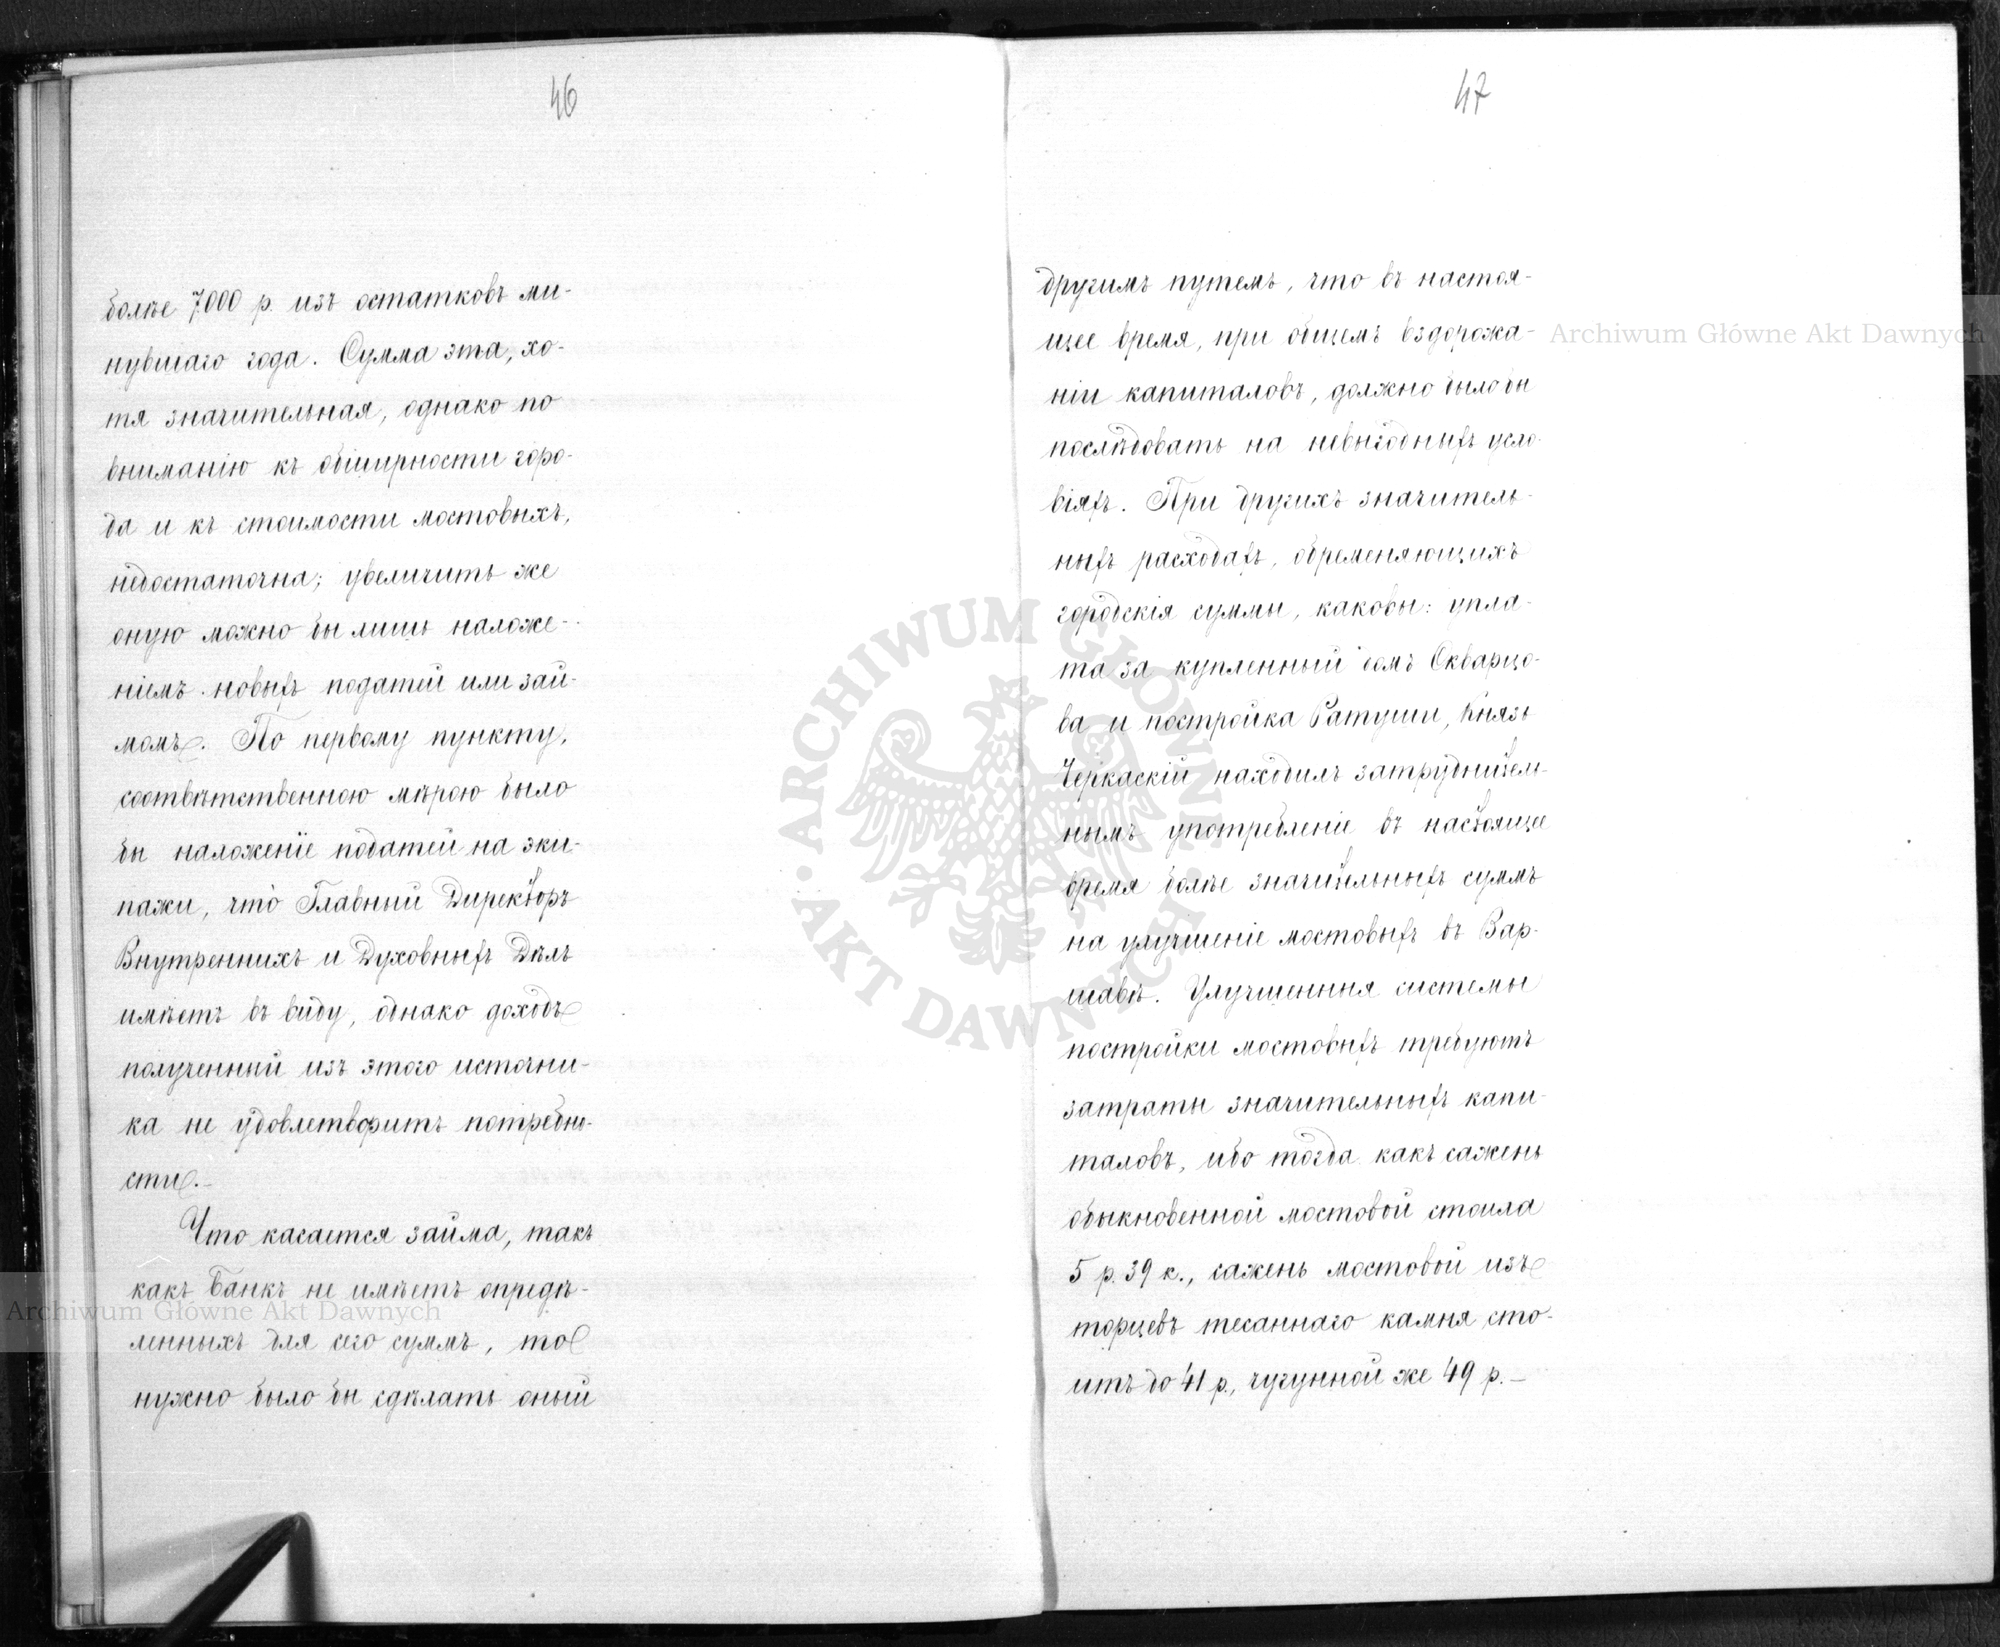 46
болѣе 7000 р. изъ остатковъ ми-
нувшаго года. Сумма эта, хо-
тя значительная, однако по
вниманію къ обширности горо-
да и къ стоимости мостовыхъ,
недостаточна; увеличить же
оную можно бы лишь наложе-
ніемъ новыхъ податей или зай-
момъ. По первому пункту,
соотвѣтственною мѣрою было
бы наложеніе податей на эки-
пажи, что Главный Директоръ
Внутреннихъ и Духовныхъ Дѣлъ
имѣетъ въ виду, однако доходъ
полученный изъ этого источни-
ка не удовлетворитъ потребно-
сти.-
Что касается займа, такъ
какъ Банкъ не имѣетъ опредѣ-
ленныхъ для сего суммъ, то
нужно было бы сдѣлать оный
47
другимъ путемъ, что въ настоя-
щее время, при общемъ вздорожа-
ніи капиталовъ, должно было бы
послѣдовать на невыгодныхъ усло-
віяхъ. При другихъ значитель-
ныхъ расходахъ, обременяющихъ
городскія суммы, каковы: упла-
та за купленный домъ Скварцо-
ва и постройка Ратуши, Князь
Черкаскій находилъ затруднитель-
нымъ употребленіе въ настоящее
время болѣе значительныхъ суммъ
на улучшеніе мостовыхъ въ Вар-
шавѣ. Улучшенныя системы
постройки мостовыхъ требуютъ
затраты значительныхъ капи-
таловъ, ибо тогда какъ сажень
обыкновенной мостовой стоила
5 р. 39 к., сажень мостовой изъ
торцевъ тесаннаго камня сто-
итъ до 41 р., чугунной же 49 р.-
Archiwum Główne Akt Dawnych
Archiwum Główne Akt Dawnych
ARCHIWUM GŁÓWNE · AKT DAWNYCH ·